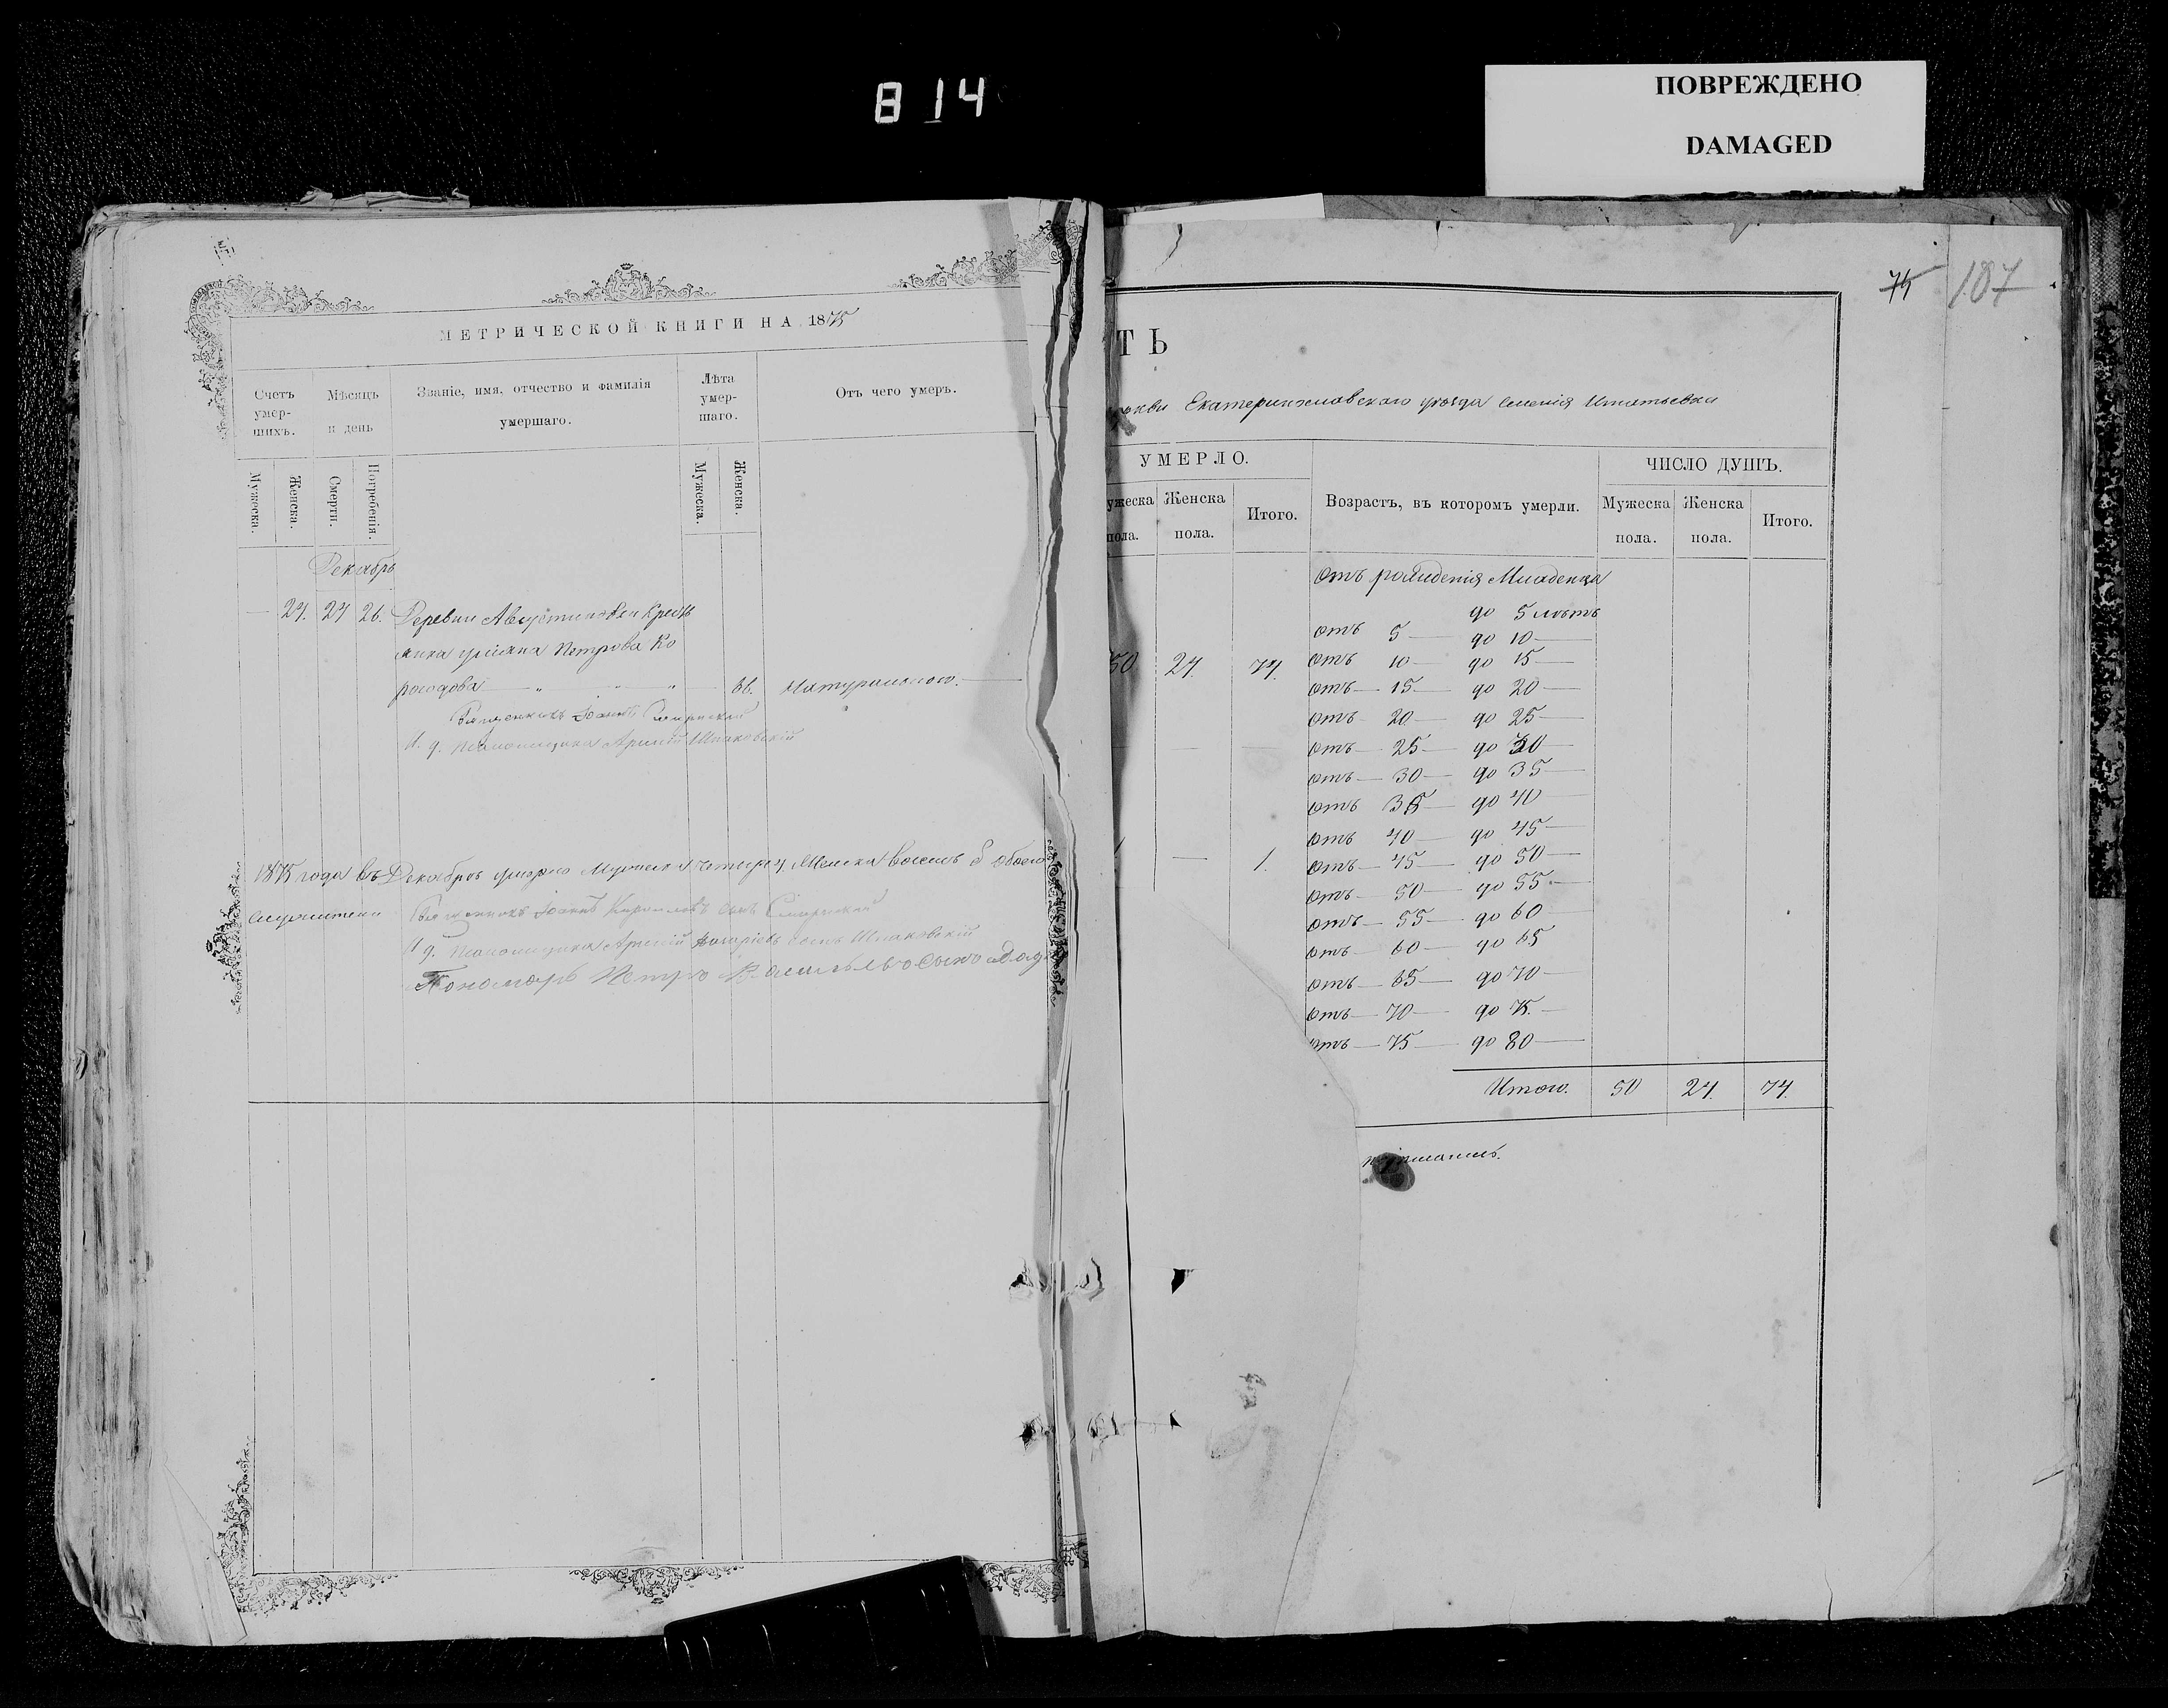 814
ПОВРЕЖДЕНО
DAMAGED
МЕТРИЧЕСКОЙ КНИГИ НА 1875
Счетъ умер-шихъ.
Мѣсяцъ и день
Званіе, имя, отчество и фамилія умершаго.
Лѣта умер-шаго.
Отъ чего умеръ.
Мужеска.
Женска.
Смерти.
Погребенія.
Мужеска.
Женска.
Декабрь
— 24. 24 26. Деревни Августиновки Кресть
янка Петрова Ко
рогодова 86. Натурально.
Священникъ Іоаннъ
И. д. Псаломщика Шпаковскій
1875 года въ Декабрѣ умерло Мужеска четыре 4, Женска восемь 8 обоего
Священникъ Іоаннъ сынъ
И. д. Псаломщика сынъ Шпаковскій
Пономарь Петръ сынъ
75 187
ТЬ
Екатеринославского уѣзда селенія Игнатьевки
УМЕРЛО.
Возрастъ, въ которомъ умерли.
ЧИСЛО ДУШЪ.
ужеска пола.
Женска пола.
Итого.
Мужеска пола.
Женска пола.
Итого.
Отъ рожденія Младенца
до 5 лѣтъ
отъ 5 — до 10 —
50 24. 74. отъ 10 — до 15 —
отъ — 15 — до 20 —
отъ — 20 — до 25 —
— — отъ — 25 — до 30 —
отъ — 30 — до 35 —
отъ 35 — до 40 —
отъ 40 — до 45 —
— 1. отъ — 45 — до 50 —
отъ — 50 — до 55 —
отъ — 55 — до 60
отъ — 60 — до 65
отъ — 65 — до 70 —
отъ — 70 — до 75. —
отъ — 75 — до 80 —
Итого. 50 24. 74.